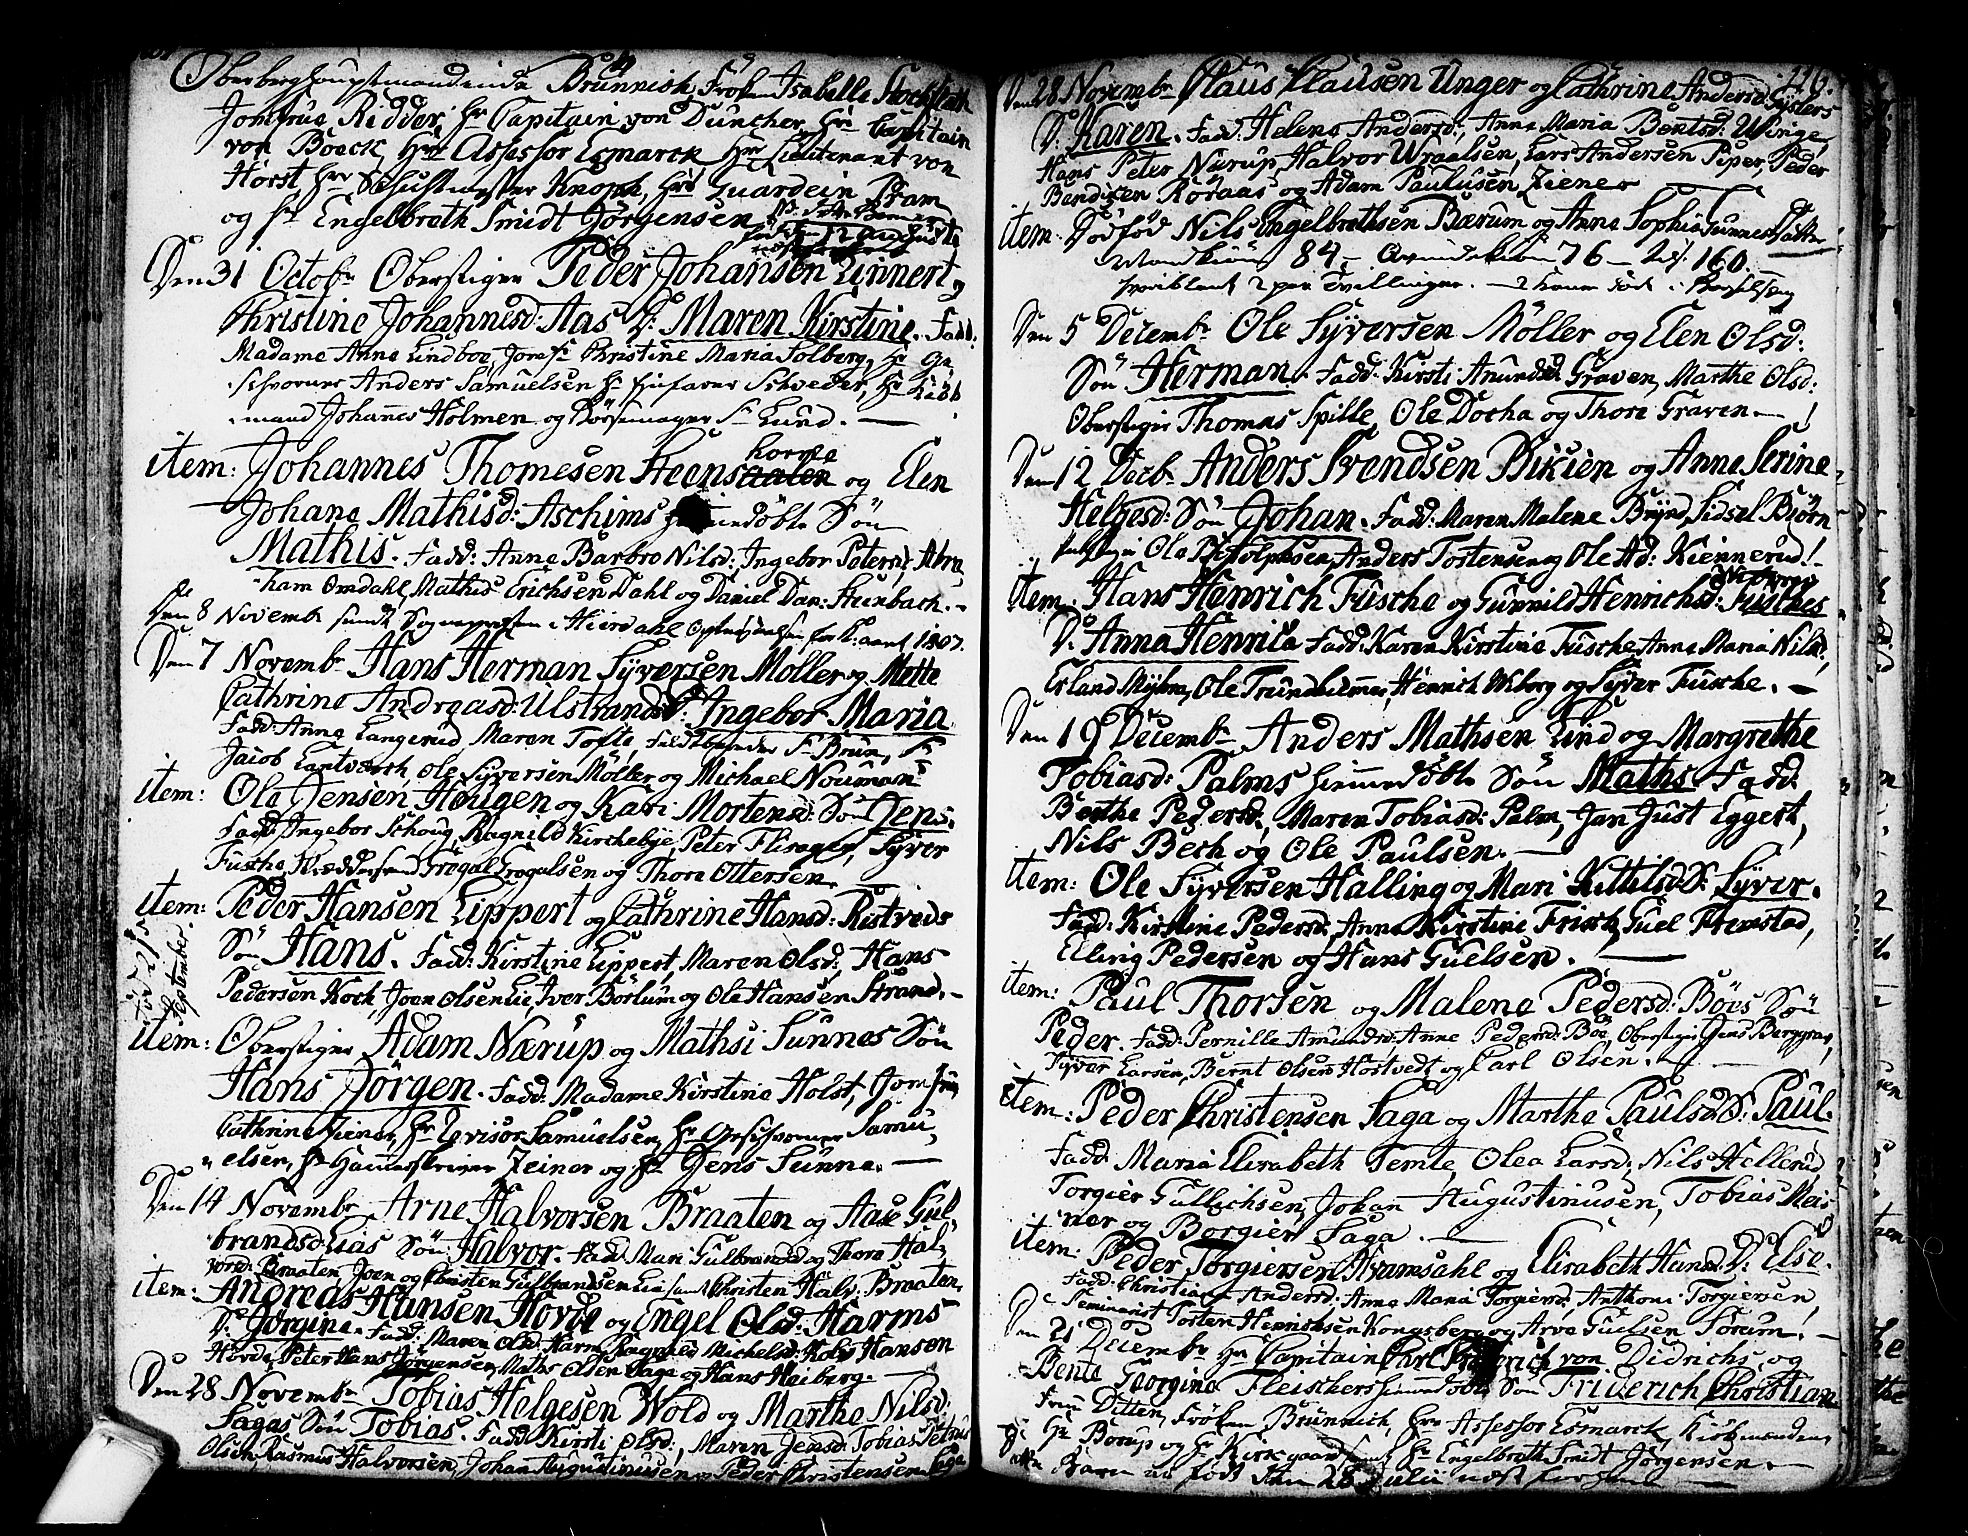 Oberberghauptmandinde Brünnich, Frøken Isabelle Stockfleth
Jomfrue Ridder, Hr Capitain von Düncher, Hr Capitain
von Boeck, Hr Assessor Esmarck, Hr Lieutenant von
Horst, Hr Knoph, Hr Guardein Bram
og Hr Engelbrath Smidt Jørgensen
Den 31 Octobr Oberstiger Peder Johansen Linnert og
Christine Johannesd: Aas D: Maren Kirstine. Fadd:
Madame Anne Lindboe, Jomfr Christine Maria Solberg, Hr Ge
schworner Anders Samuelsen Hr Schreder, Hr Kiøb
mand Johannes Holmen og Børsemager Sr Lund. —
item: Johannes Thomesen Steens og Elen
korne
Johane Mathisd: Aschims hiemmedøbte Søn
Mathis. Fadd: Anne Barbro Nilsd: Ingebor Petersd, Abra
ham Omdahl, Mathis Erichsen Dahl og Daniel Dan: Steenbach. -
Den 8 Novembr i Hierdahl for Aaret 1807.
Den 7 Novembr Hans Herman Syversen Møller og Mette
Cathrine Andreasd: Ulstrands D: Ingebor Maria
Fadd: Anne Langerud, Maren Tofte, Sr Brun, Sr
Jacob Lantværck, Ole Syversen Møller og Michael Noumann
item: Ole Jensen Hougen og Kari Mortensd: Søn Jens.
Fadd: Ingebor Schoug, Ragnild Kirchebye, Peter Flisager, Syver
Fusche, Grøgal Grøgalsen og Thore Ottersen.
item: Peder Hansen Lippert og Cathrine Hansd: Ristveds
Søn Hans. Fadd: Kirstine Lippert, Maren Olsd, Hans
Pedersen Koch, Joen Olsen Lie, Iver Børlum og Ole Hansen Strand. -
fød 21
September.
item: Oberstiger Adam Nærup og Mathsi Sunnes Søn
Hans Jørgen. Fadd: Madame Kirstine Holst, Jomfrue
Cathrine Ziener, Hr Samuelsen, Hr Geschvorner Samu
elsen, Hr Hammerskriver Zeiner og Hr Jens Sunne. —
Den 14 Novembr Arne Halvorsen Braaten og Aase Gul
brandsd: Lias Søn Halvor. Fadd: Mari Gulbrandsd og Thora Hal
vorsd: Braaten, Joen og Christen Gulbrandsen Lie samt Christen Halv: Braaten
item: Andreas Hansen Hovde og Engel Olsd: Harms
D: Jørgine. Fadd: Maren Olsd: Harm, Ragnild Michelsd: Kolv Hansen
Hovde, Peter Hans Jørgensen, Maths Olsen Saga og Hans Heiberg. —
Den 28 Novembr Tobias Helgesen Wold og Marthe Nilsd:
Sagas Søn Tobias. Fadd: Kirsti Olsd:, Maren Jensd: Tobias Petrus
Olsen, Rasmus Halvorsen, Johan Augustinusen og Peder Christensen Saga
116.
Den 28 Novembr Claus Clausen Unger og Cathrine Andersd Systers
D: Karen. Fadd: Helene Andersd:, Anne Maria Bentsd: Winge,
Hans Peter Nærup, Halvor Wraalsen, Lars Andersen Piper, Peder
Bendixen Roraas og Adam Paulusen Ziener
item: Dødfød Nils Engelbrethsen Bærum og Anne Sophia Sunnes Datter
Mandkiøn 84 – Qvindekiøn 76 – 160.
hvoriblant 2 par Tvillinger. —
Den 5 Decembr Ole Syversen Møller og Elen Olsd:
Søn Herman. Fadd: Kirsti Anundsd: Graven, Marthe Olsd:
Oberstiger Thomas Spille, Ole Docha og Thore Graven. —
Den 12 Decbr Anders Svendsen Bikien og Anne Serine
Helgesd: Søn Johan. Fadd: Maren Malene Brynd, Sidsel Biørn
Ole Rolphsen, Anders Tostensen og Ole Ad: Kiennerud! -
item: Hans Henrich Fusche og Gunnild Henrichsd: Fusches
Wiborg
D: Anna Henrica Fadd: Karen Kirstine Fusche, Anne Maria Nilsd,
Erland Myhra, Ole Trundhiemer, Henrich Wiborg og Syver Fusche. —
Den 19 Decembr Anders Mathsen Lind og Margrethe
Tobiasd: Palms hiemmedøbte Søn Maths. Fadd:
Berthe Pedersd, Maren Tobiasd: Palm, Jan Just Eggert,
Nils Bech og Ole Paulsen. —
item: Ole Syversen Halling og Mari Kittilsd: S: Syver.
Fadd: Kirstine Pedersd, Anne Kirstine Frisch, Guel Fremstad,
Elling Pedersen og Hans Guelsen. —
item: Paul Thorsen og Malene Pedersd: Böes Søn
Peder. Fadd: Pernille Amundsd: Anne Pedersd: Boe, Oberstiger Jens Berggrav,
Syver Larsen, Bernt Olsen Hostvedt og Carl Olsen. —
item: Peder Christensen Saga og Marthe Paulsd S: Paul.
Fadd: Maria Elisabeth Temte, Olea Larsd:, Nils Hellerud
Torgier Gullichsen, Johan Augustinusen, Tobias Meis
ner og Borgier Saga. —
item: Peder Torgiersen Hvamsahl og Elisabeth Hansd: D: Else.
Fadd: Christian Andersd: Anne Maria Torgiersd: Anthoni Torgiersen,
Seminarist Tosten Henrichsen Kongsberg og Arve Guelsen Sorum. —
Den 21 Decembr Hr Capitain Carl Friderich von Didrichs og
Bente Georgine Fleischers hiemmedøbte Søn Friderich Christian
Frue Ditten, Frøken Brünnich, Hr Assessor Esmarck, Kiøbmændene
Hr Borup og Hr Kirkgaard, Hr Engelbrath Smidt Jørgensen. —
Barn er født den 28 Julii